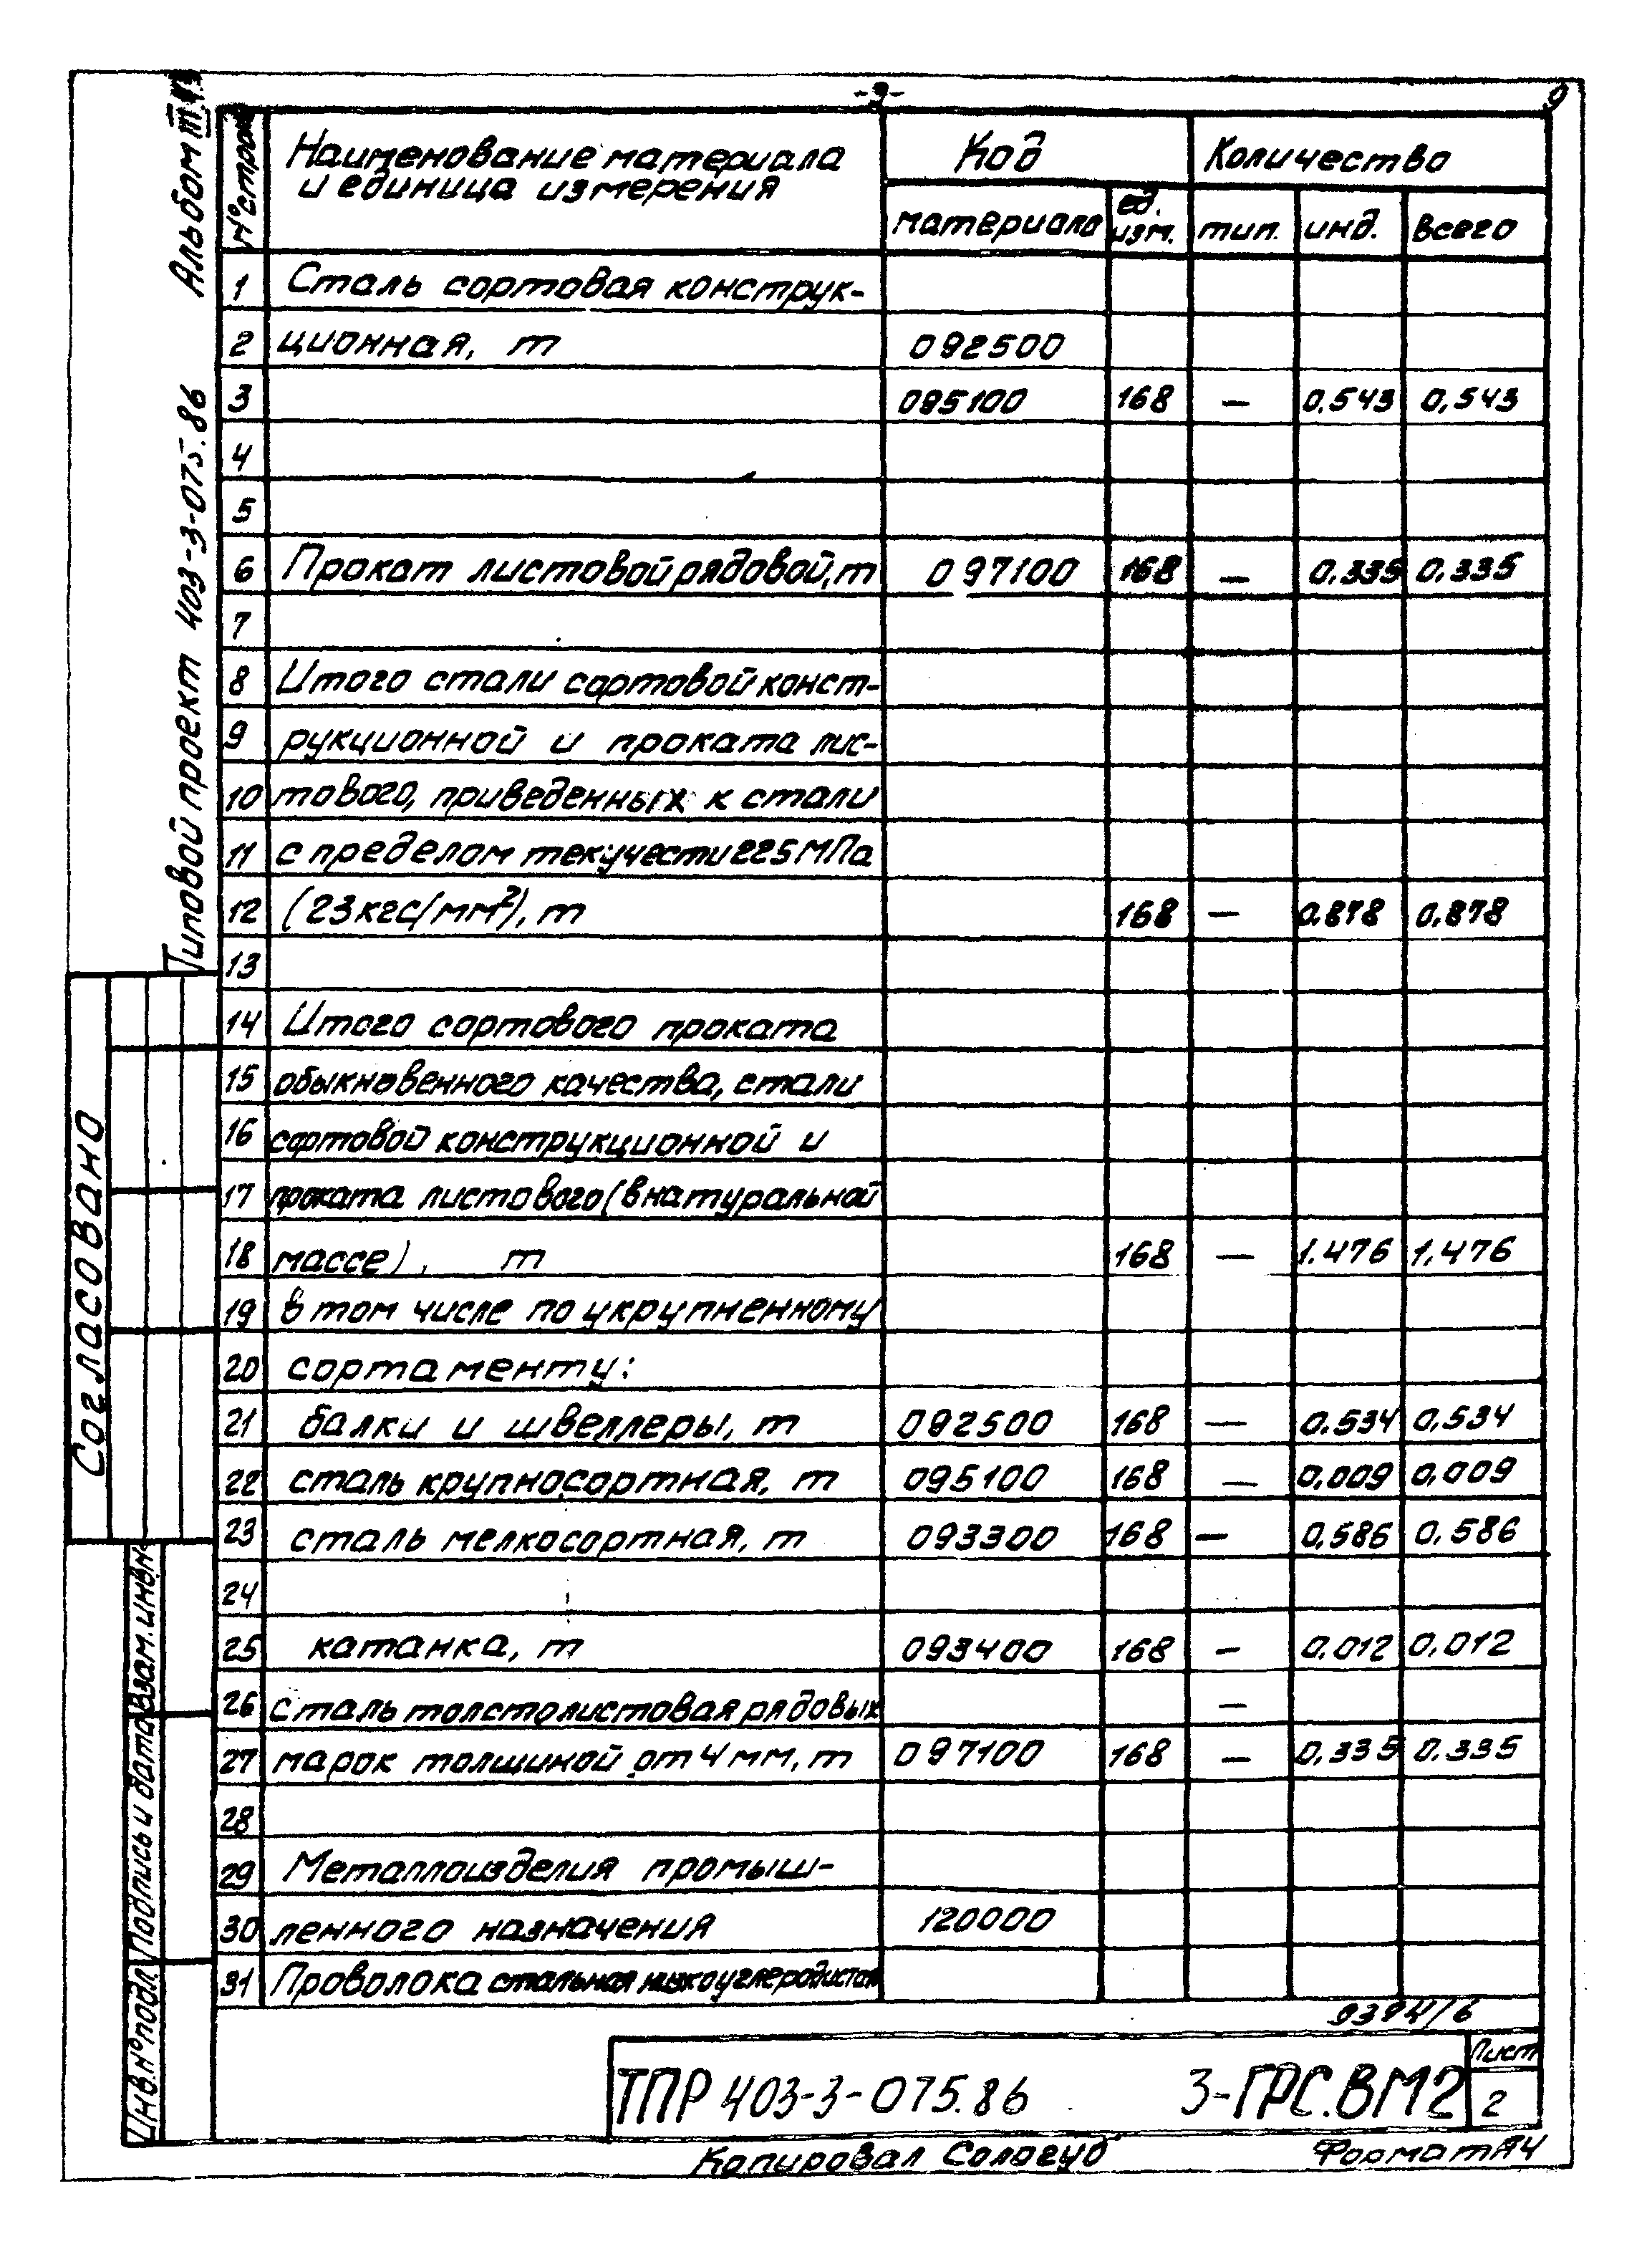 -9-
9
Альбом III
Типовой проект 403-3-075.86
№ строк
Наименование материала
и единица измерения
Код
Количество
материала
ед.
изм.
тип.
инд.
всего
1 Сталь сортовая конструк-
2 ционная, т 092500
3 095100 168 — 0,543 0,543
4
5
6 Прокат листовой рядовой, т 097100 168 — 0.335 0.335
7
8 Итого стали сортовой конст-
9 рукционной и проката лис-
10 тового, приведенных к стали
11 с пределом текучести 225 МПа
12 (23 кгс/мм²), т 168 — 0.878 0.878
13
14 Итого сортового проката
15 обыкновенного качества, стали
16 сортовой конструкционной и
17 проката листового (в натуральной
18 массе), т 168 — 1.476 1,476
19 в том числе по укрупненному
20 сортаменту:
21 балки и швеллеры, т 092500 168 — 0.534 0,534
22 сталь крупносортная, т 095100 168 — 0,009 0,009
23 сталь мелкосортная, т 093300 168 — 0,586 0,586
24
25 катанка, т 093400 168 — 0.012 0,012
26 сталь толстолистовая рядовых —
27 марок толщиной от 4 мм, т 097100 168 — 0,335 0.335
28
29 Металлоизделия промыш-
30 ленного назначения 120000
31 Проволока стальная низкоуглеродистая
Согласовано
Взам. инв.№
Подпись и дата
Инв.№ подл.
9394/6
ТПР 403-3-075.86 3-ГРС.ВМ2
Лист
2
Копировал Сологуб Формат А4